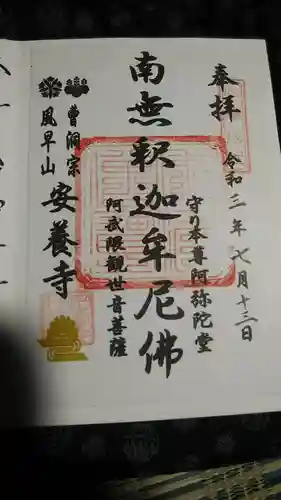 奉拝
令和三年七月十三日
守り本尊阿弥陀堂
南無釈迦牟尼佛
阿武隈観世音菩薩
曹洞宗
風早山
安養寺